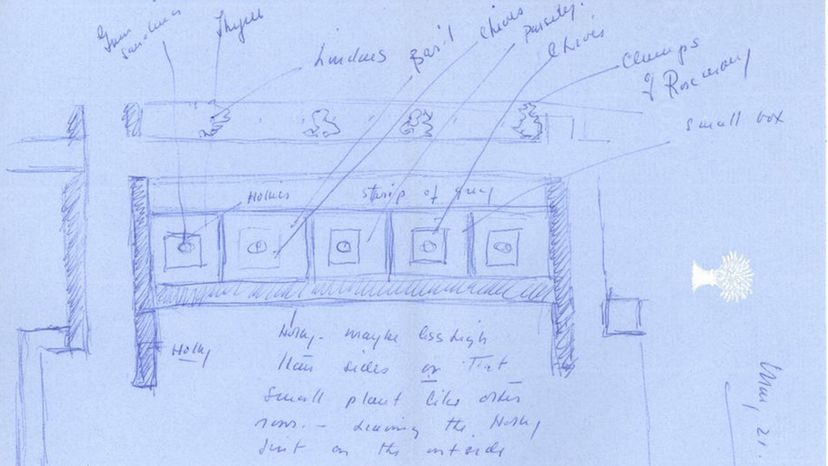 Thyme
Basil
Chives
Parsley.
Chives
Clumps
of Rosemary
small box
Hollies
strip of grey
Holly
Holly - maybe less high
than sides or
small plant like other
- leaving the Holly
on the outside
May, 21.